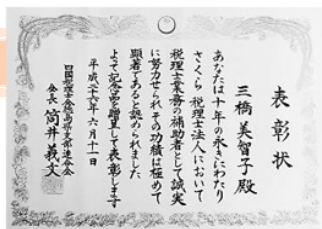 表彰状
三橋美智子殿
あなたは十年の永きにわたり
さくら税理士法人において
税理士業務の補助者として誠実
に努力せられその功績は極めて
顕著であると認められました
よって記念品を贈呈して表彰します
平成二十六年六月十一日
四国税理士会徳島県支部連合会
会長 筒井義文